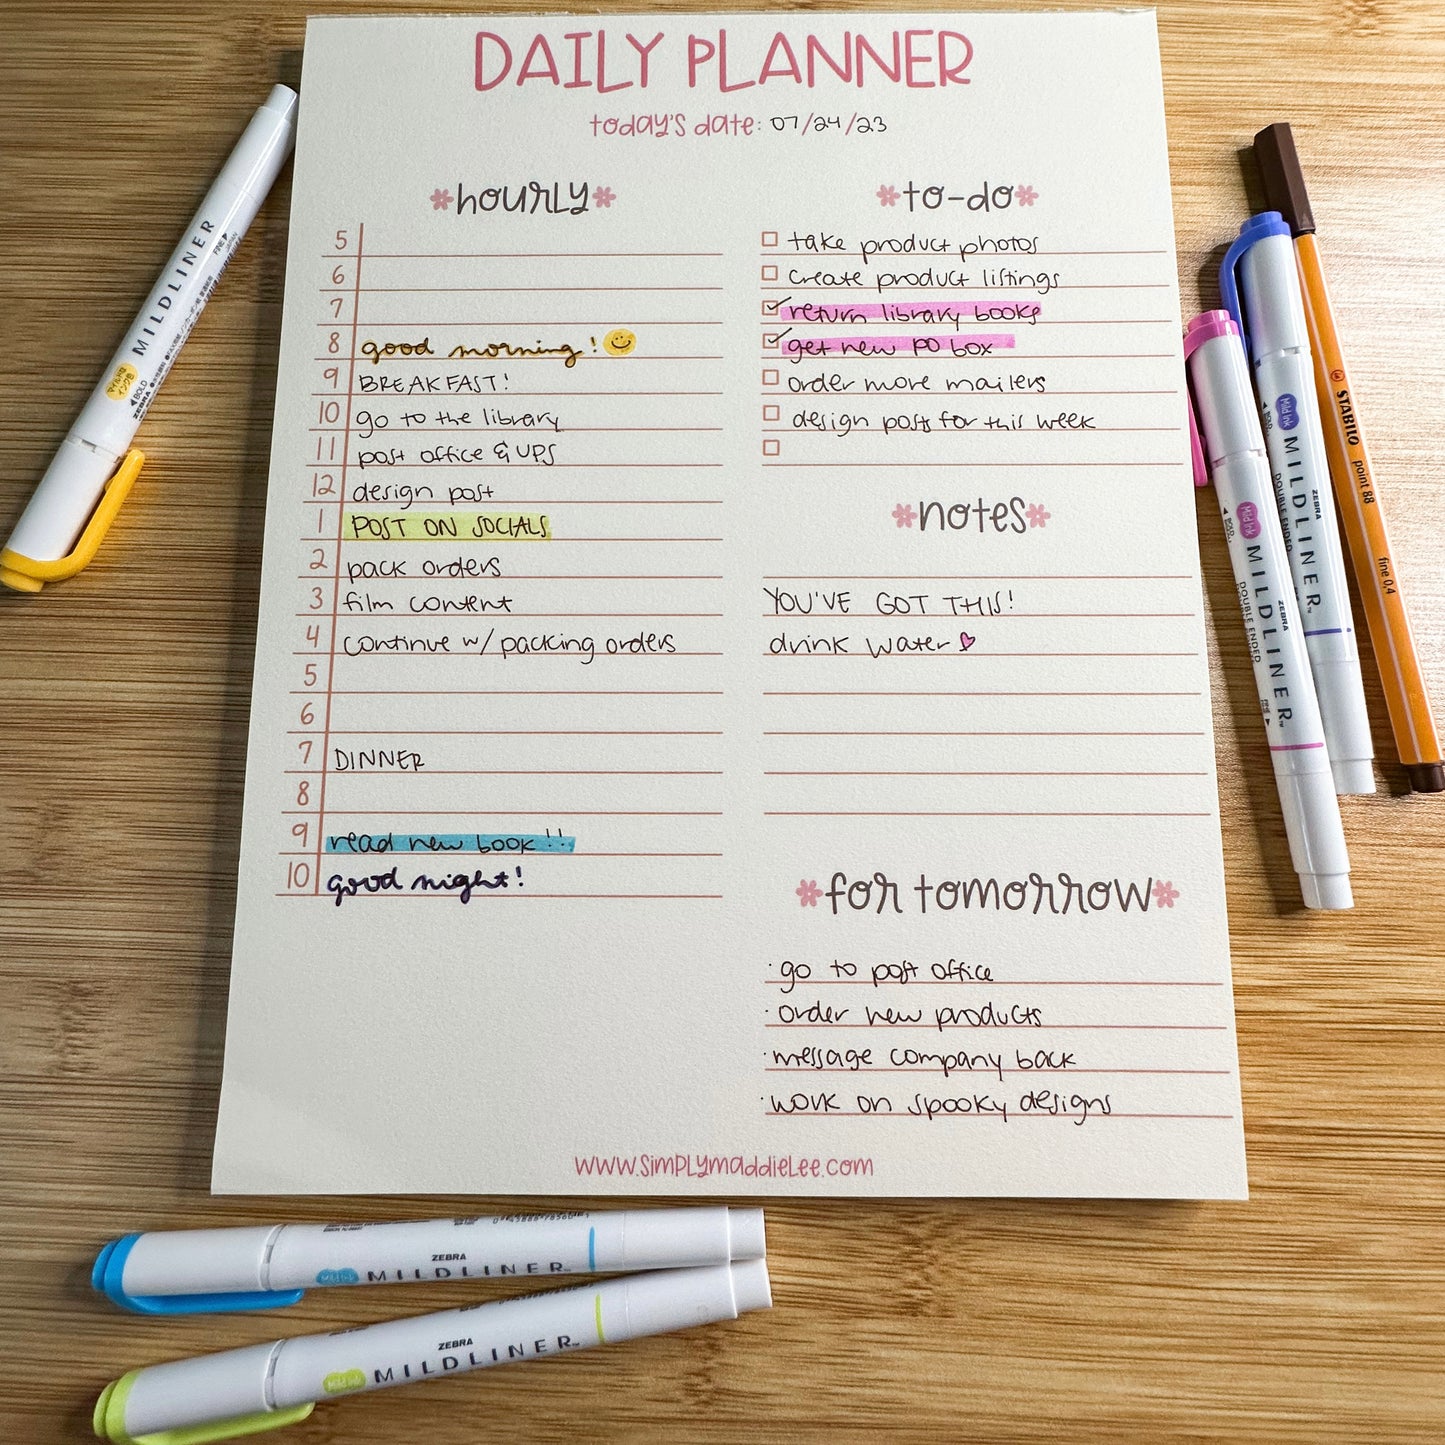 DAILY PLANNER
today's date: 07/24/23
hourly
5
6
7
8 good morning!
9 BREAKFAST!
10 go to the library
11 post office & UPS
12 design post
1 POST ON SOCIALS
2 pack orders
3 film content
4 continue w/ packing orders
5
6
7 DINNER
8
9 read new book!!
10 good night!
to-do
take product photos
create product listings
return library books
get new PO box
order more mailers
design posts for this week
notes
YOU'VE GOT THIS!
drink water
for tomorrow
· go to post office
· order new products
· message company back
· work on spooky designs
www.simplymaddielee.com
MILDLINER
FINE
JAPAN
BOLD
ZEBRA
Mild Ink
ZEBRA
MILDLINER™
DOUBLE ENDED
BOLD
FINE
Mild Ink
ZEBRA
MILDLINER™
DOUBLE ENDED
STABILO point 88 fine 0,4
ZEBRA
Mild Ink MILDLINER™
ZEBRA
Mild Ink MILDLINER™